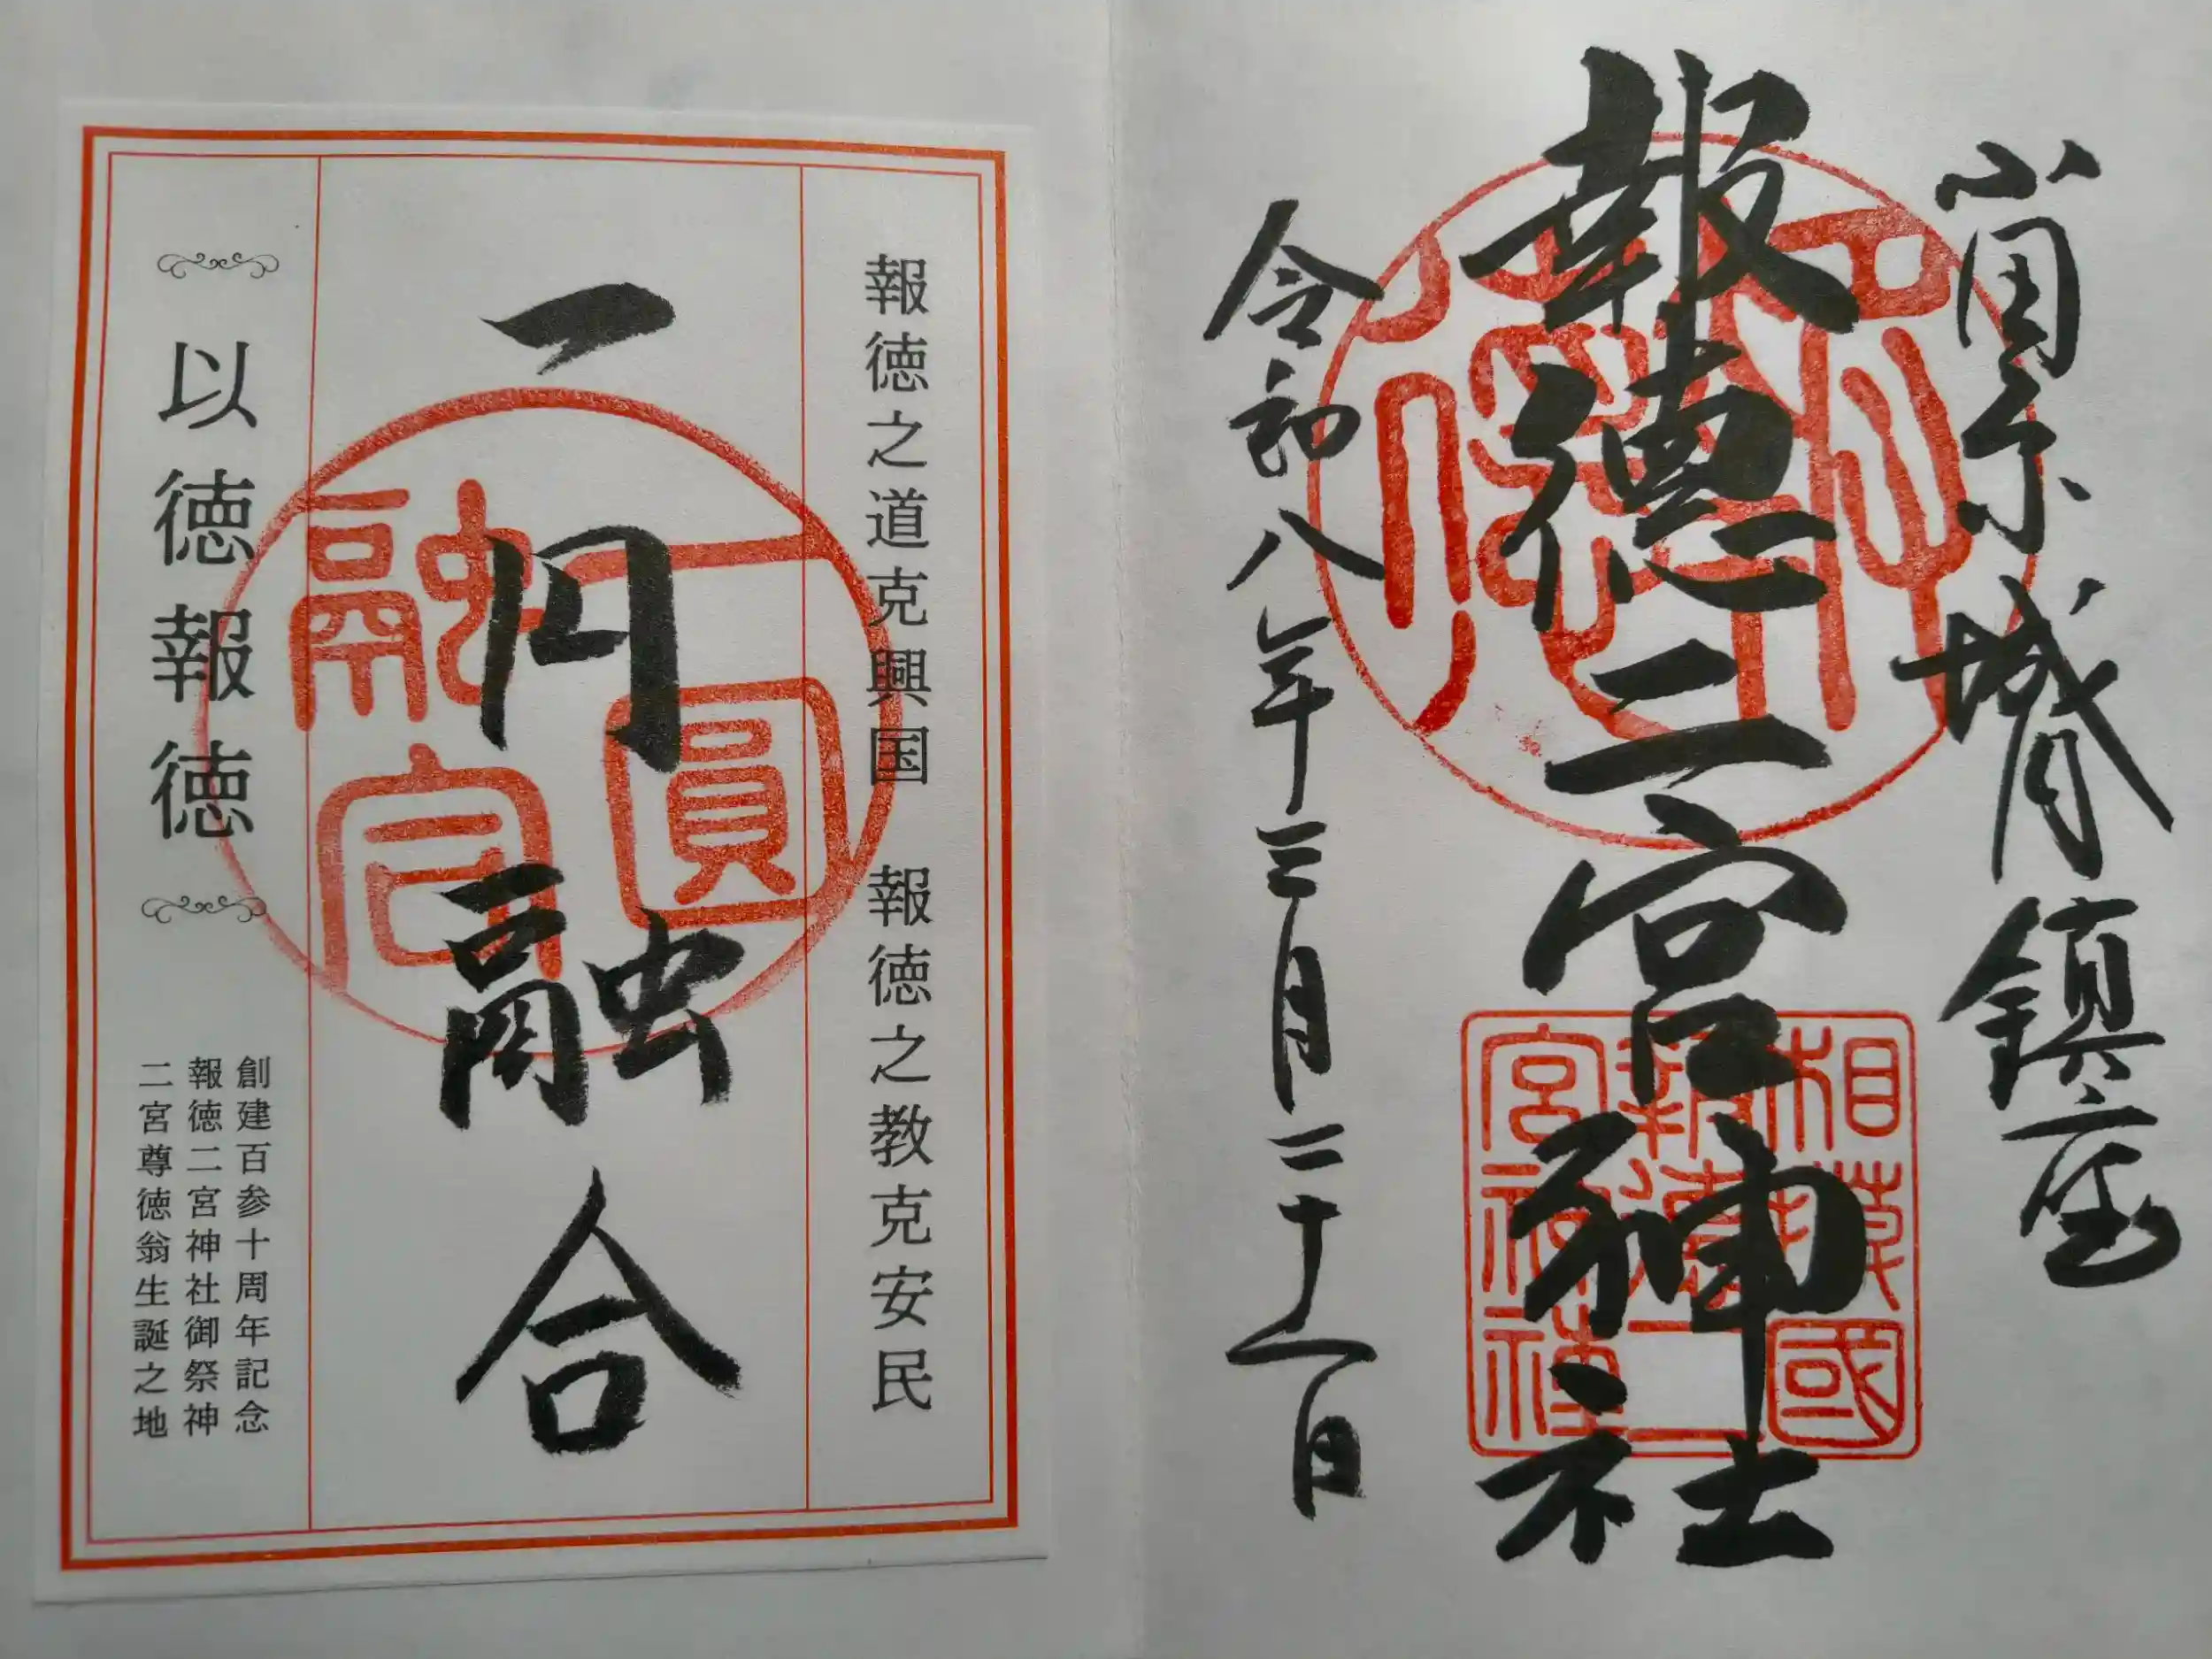 小田原城内鎮座
報徳二宮神社
令和八年三月二十一日
相模國
報徳二
宮神社
報徳之道克興国　報徳之教克安民
一円融合
一圓
融合
以徳報徳
創建百参十周年記念
報徳二宮神社御祭神
二宮尊徳翁生誕之地